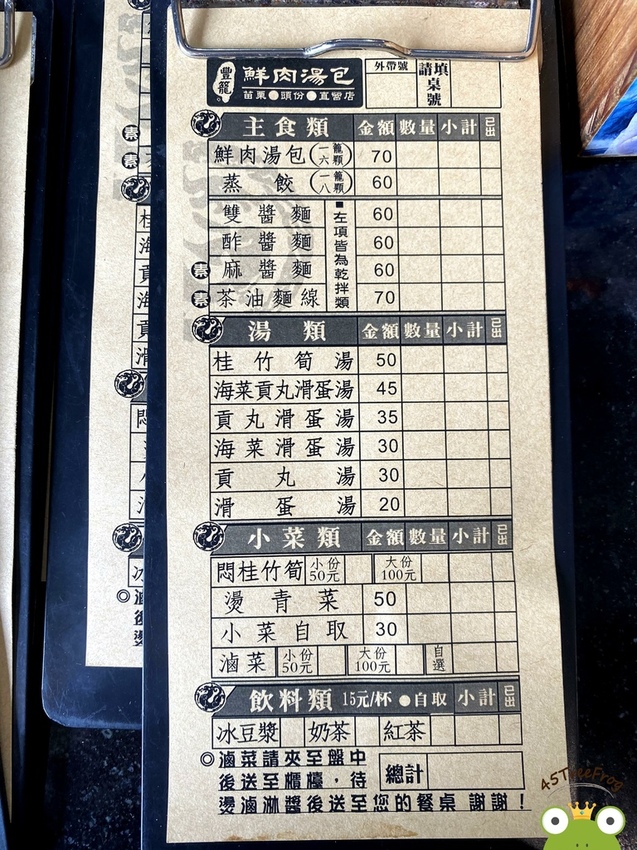 豐籠 鮮肉湯包 外帶號 請填桌號
苗栗●頭份●直營店
主食類 金額 數量 小計 已出
鮮肉湯包(一籠六顆) 70
蒸餃(一籠八顆) 60
雙醬麵 60
酢醬麵 60
素 麻醬麵 60
素 茶油麵線 70
■左項皆為乾拌類
湯類 金額 數量 小計 已出
桂竹筍湯 50
海菜貢丸滑蛋湯 45
貢丸滑蛋湯 35
海菜滑蛋湯 30
貢丸湯 30
滑蛋湯 20
小菜類 金額 數量 小計 已出
悶桂竹筍 小份50元 大份100元
燙青菜 50
小菜自取 30
滷菜 小份50元 大份100元 自選
飲料類 15元/杯 ●自取 小計 已出
冰豆漿 奶茶 紅茶
◎滷菜請夾至盤中
後送至櫃檯，待 總計
燙滷淋醬後送至您的餐桌 謝謝！
45TreeFrog